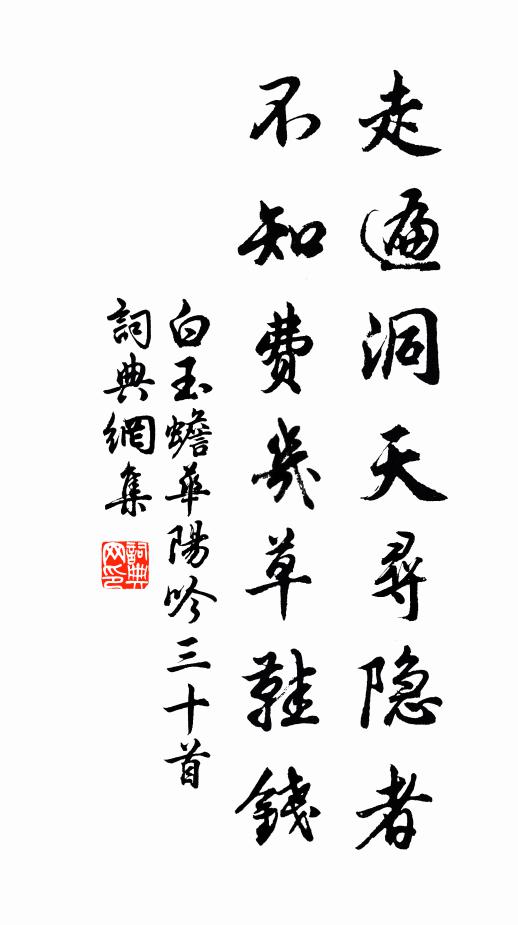 走遍洞天尋隐者
不知費幾草鞋錢
白玉蟾華陽吟三十首
詞典網集
詞典網印